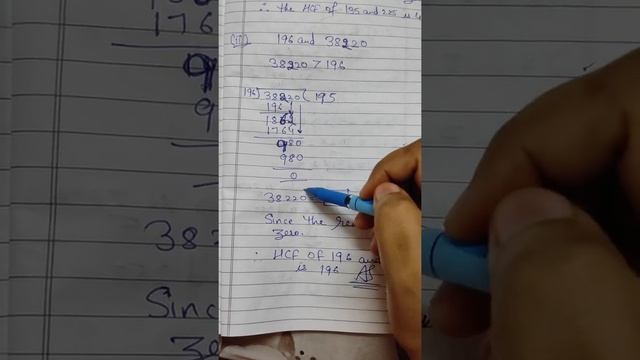 ∴ the HCF of 195 and 225 is
(ii) 196 and 38220
38220 > 196
196) 38220 ( 195
196
1862
1764
980
980
0
38220
Since the
zero.
∴ HCF OF 196 and
is 196